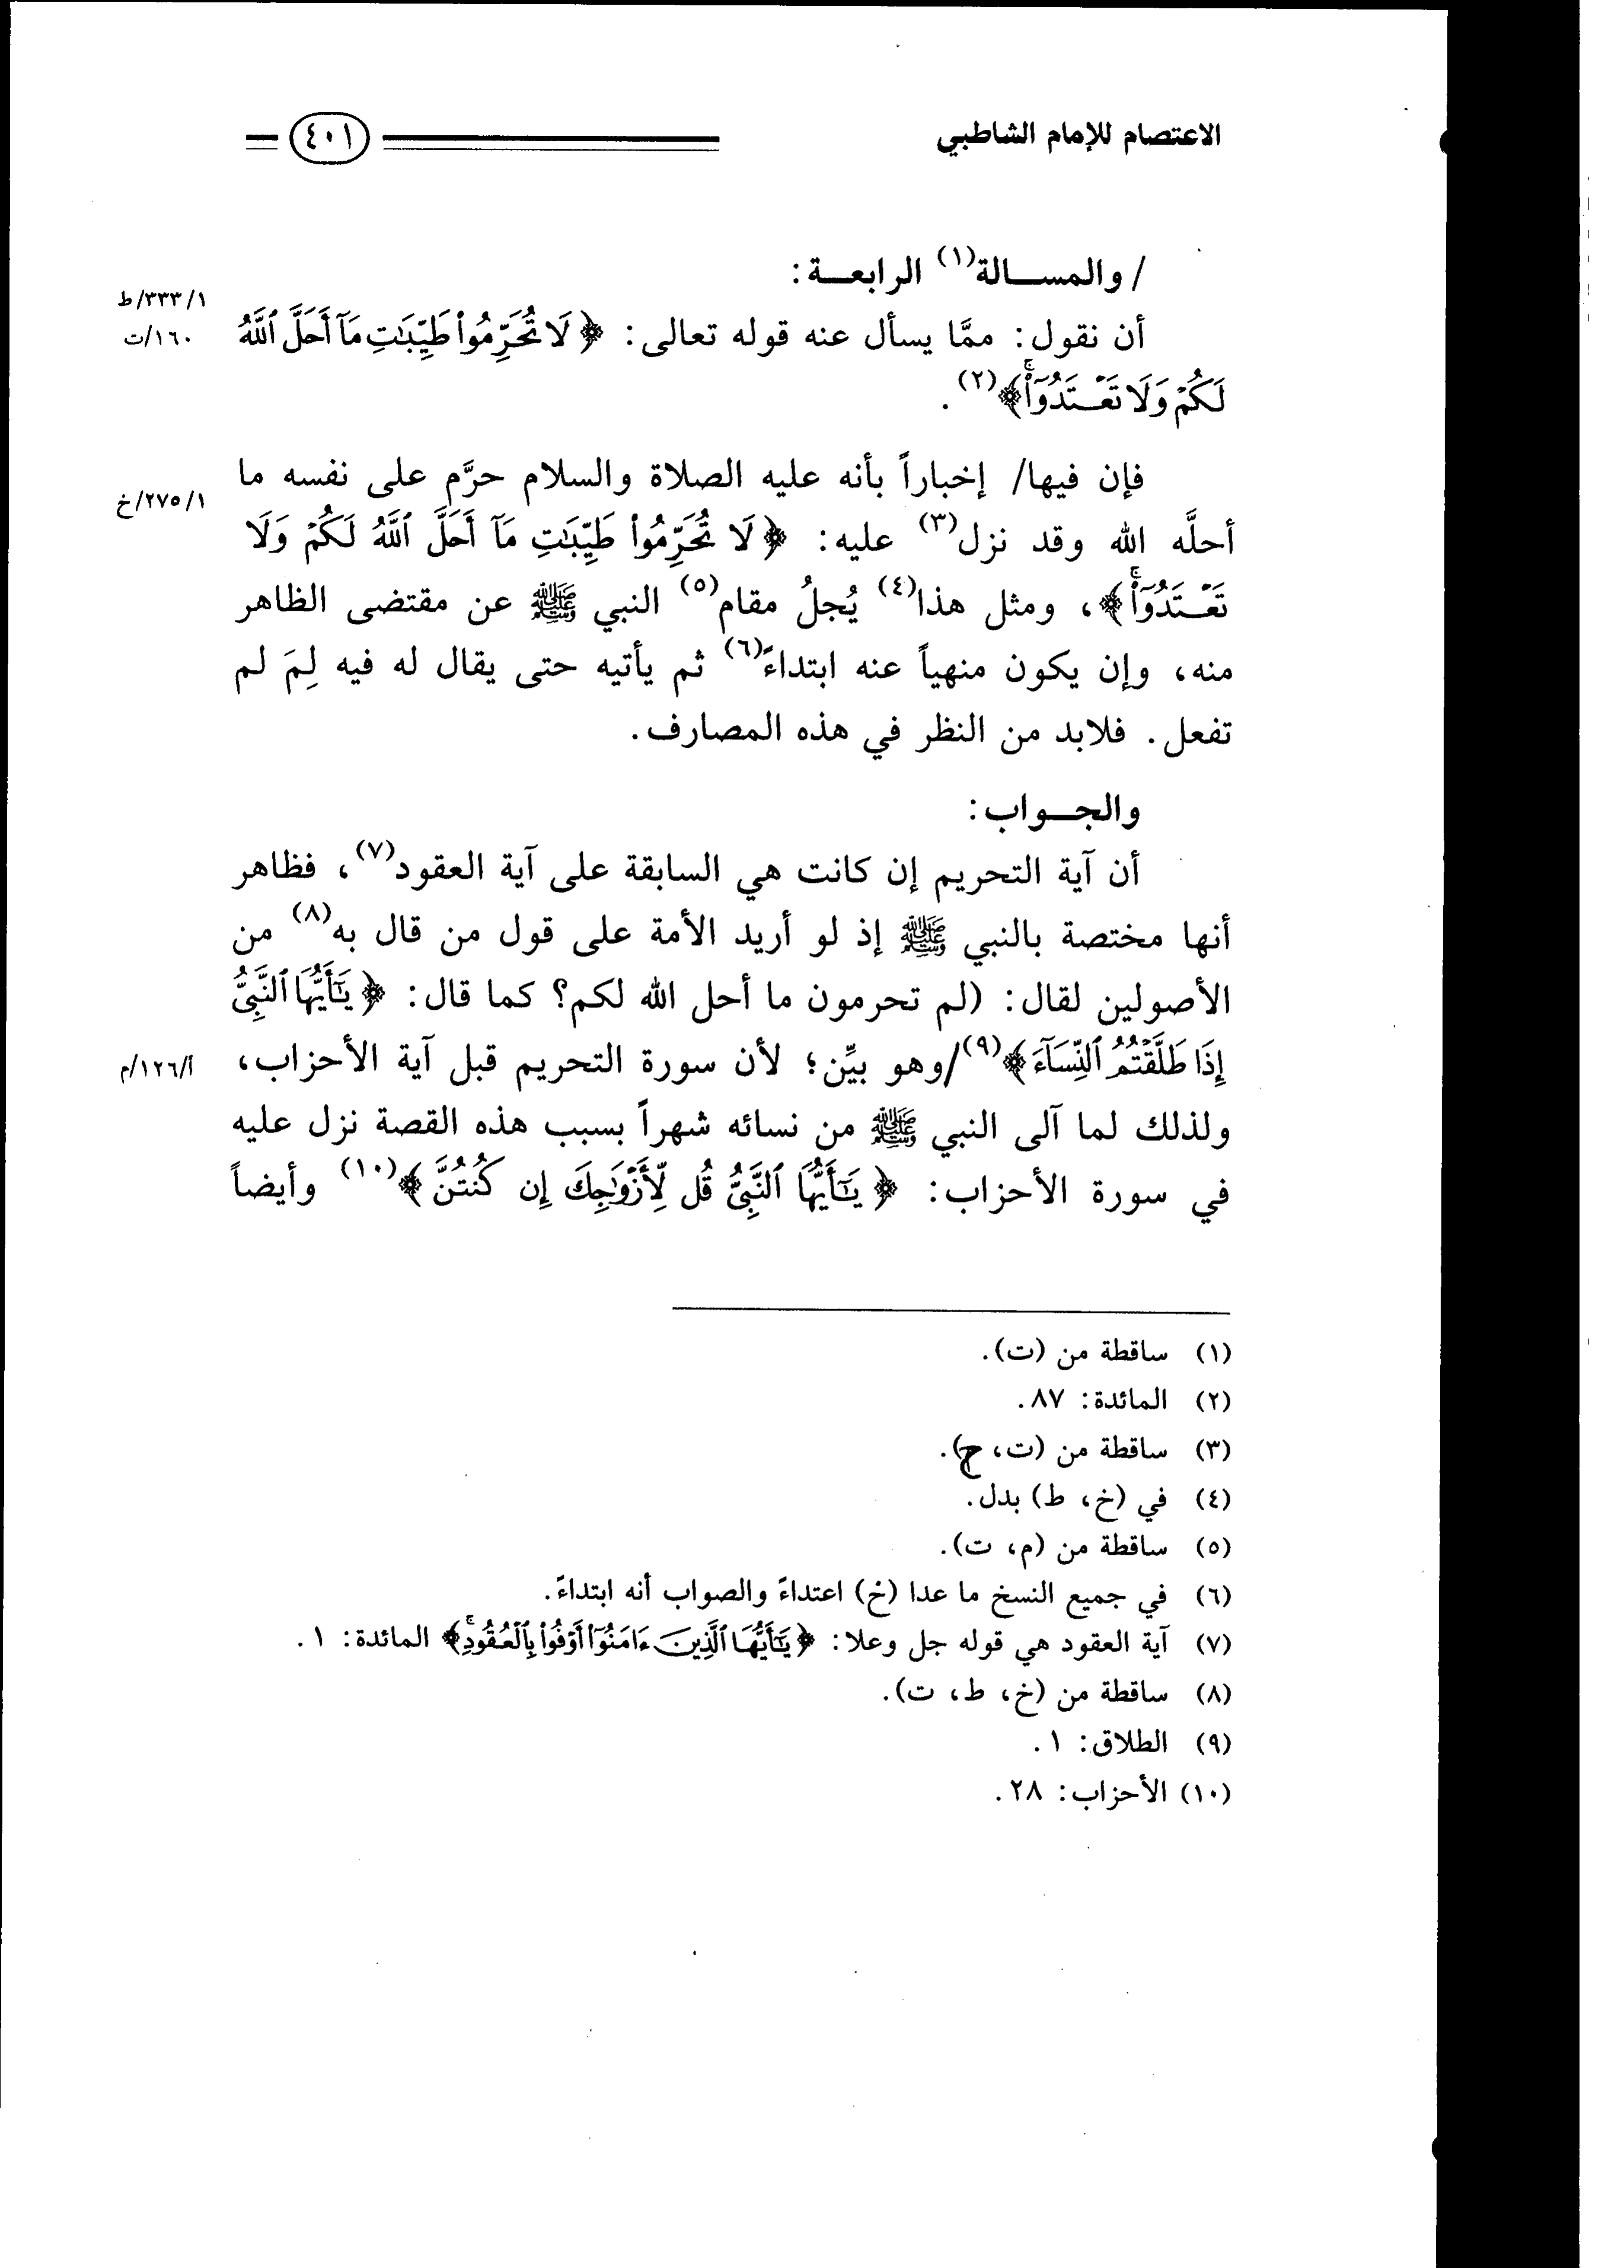 الاعتصام للإمام الشاطبي
٤٠١
/ والمسالة(١) الرابعة:
١/٣٣٣/ط
أن نقول: ممَّا يسأل عنه قوله تعالى: ﴿لَا تُحَرِّمُوا۟ طَيِّبَـٰتِ مَآ أَحَلَّ ٱللَّهُ
١٦٠/ت
لَكُمْ وَلَا تَعْتَدُوٓا۟ۚ﴾(٢).
فإن فيها/ إخباراً بأنه عليه الصلاة والسلام حرَّم على نفسه ما
١/٢٧٥/خ
أحلَّه الله وقد نزل(٣) عليه: ﴿لَا تُحَرِّمُوا۟ طَيِّبَـٰتِ مَآ أَحَلَّ ٱللَّهُ لَكُمْ وَلَا
تَعْتَدُوٓا۟ۚ﴾، ومثل هذا(٤) يُجلُ مقام(٥) النبي ﷺ عن مقتضى الظاهر
منه، وإن يكون منهياً عنه ابتداءً(٦) ثم يأتيه حتى يقال له فيه لِمَ لم
تفعل. فلابد من النظر في هذه المصارف.
والجواب:
أن آية التحريم إن كانت هي السابقة على آية العقود(٧)، فظاهر
أنها مختصة بالنبي ﷺ إذ لو أريد الأمة على قول من قال به(٨) من
الأصولين لقال: (لم تحرمون ما أحل الله لكم؟ كما قال: ﴿يَـٰٓأَيُّهَا ٱلنَّبِىُّ
إِذَا طَلَّقْتُمُ ٱلنِّسَآءَ﴾(٩)/وهو بيِّن؛ لأن سورة التحريم قبل آية الأحزاب،
أ/١٢٦/م
ولذلك لما آلى النبي ﷺ من نسائه شهراً بسبب هذه القصة نزل عليه
في سورة الأحزاب: ﴿يَـٰٓأَيُّهَا ٱلنَّبِىُّ قُل لِّأَزْوَٰجِكَ إِن كُنتُنَّ﴾(١٠) وأيضاً
(١) ساقطة من (ت).
(٢) المائدة: ٨٧.
(٣) ساقطة من (ت، ج).
(٤) في (خ، ط) بدل.
(٥) ساقطة من (م، ت).
(٦) في جميع النسخ ما عدا (خ) اعتداءً والصواب أنه ابتداءً.
(٧) آية العقود هي قوله جل وعلا: ﴿يَـٰٓأَيُّهَا ٱلَّذِينَ ءَامَنُوٓا۟ أَوْفُوا۟ بِٱلْعُقُودِۚ﴾ المائدة: ١.
(٨) ساقطة من (خ، ط، ت).
(٩) الطلاق: ١.
(١٠) الأحزاب: ٢٨.